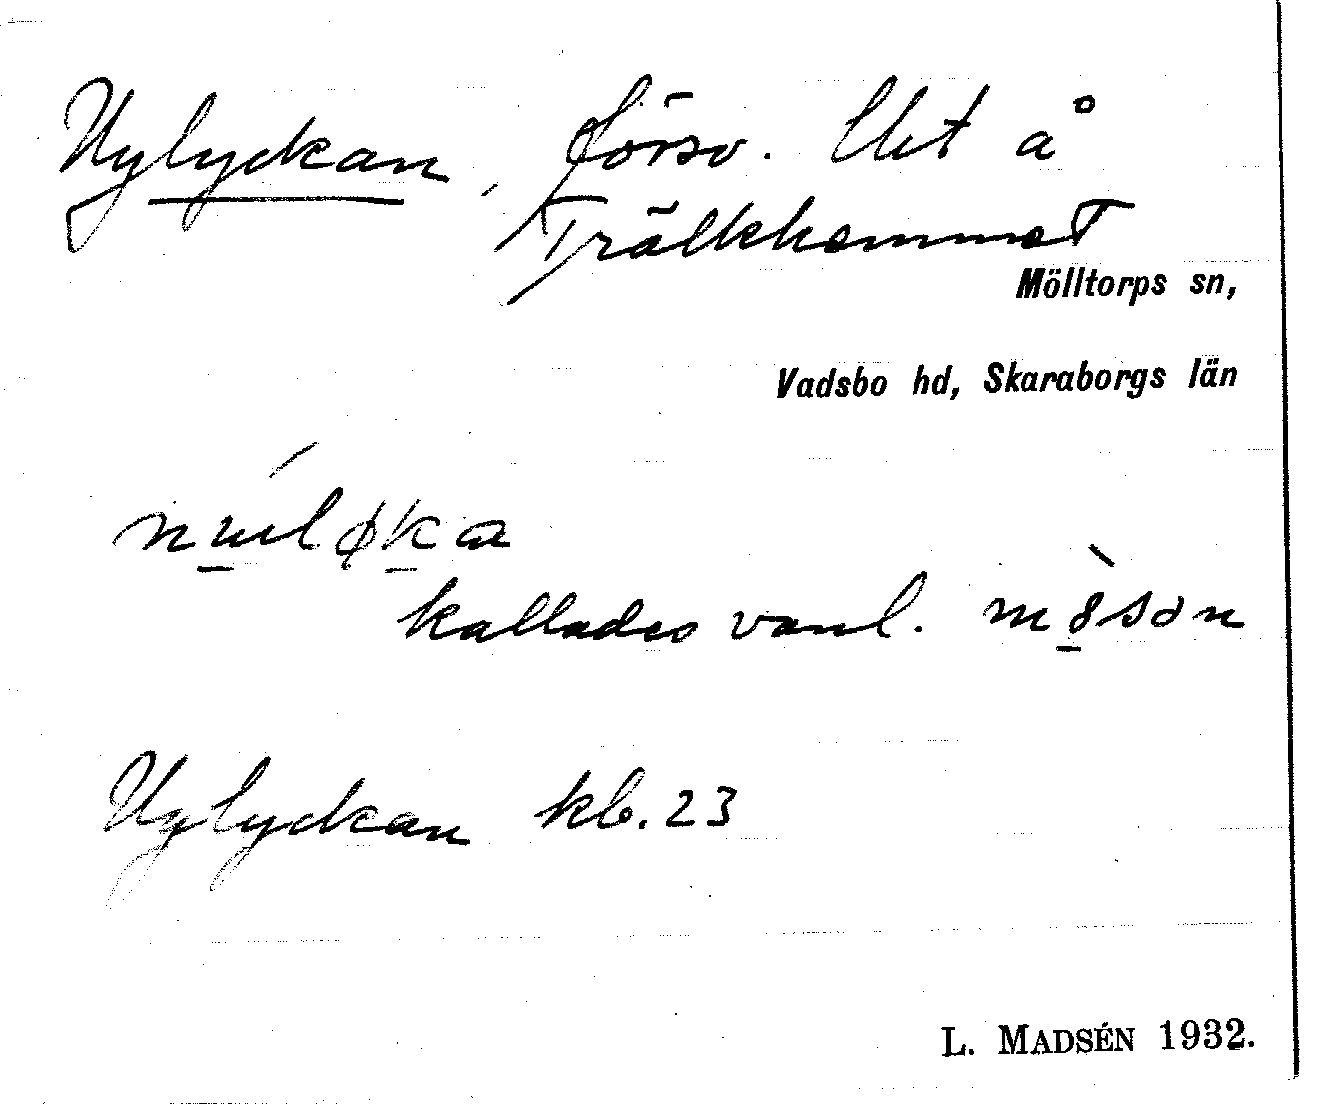 Nylyckan, försv. Utet å
Trälkhemmet
Mölltorps sn,
Vadsbo hd, Skaraborgs län
kallades vanl.
Nylyckan kb. 23
L. MADSÉN 1932.